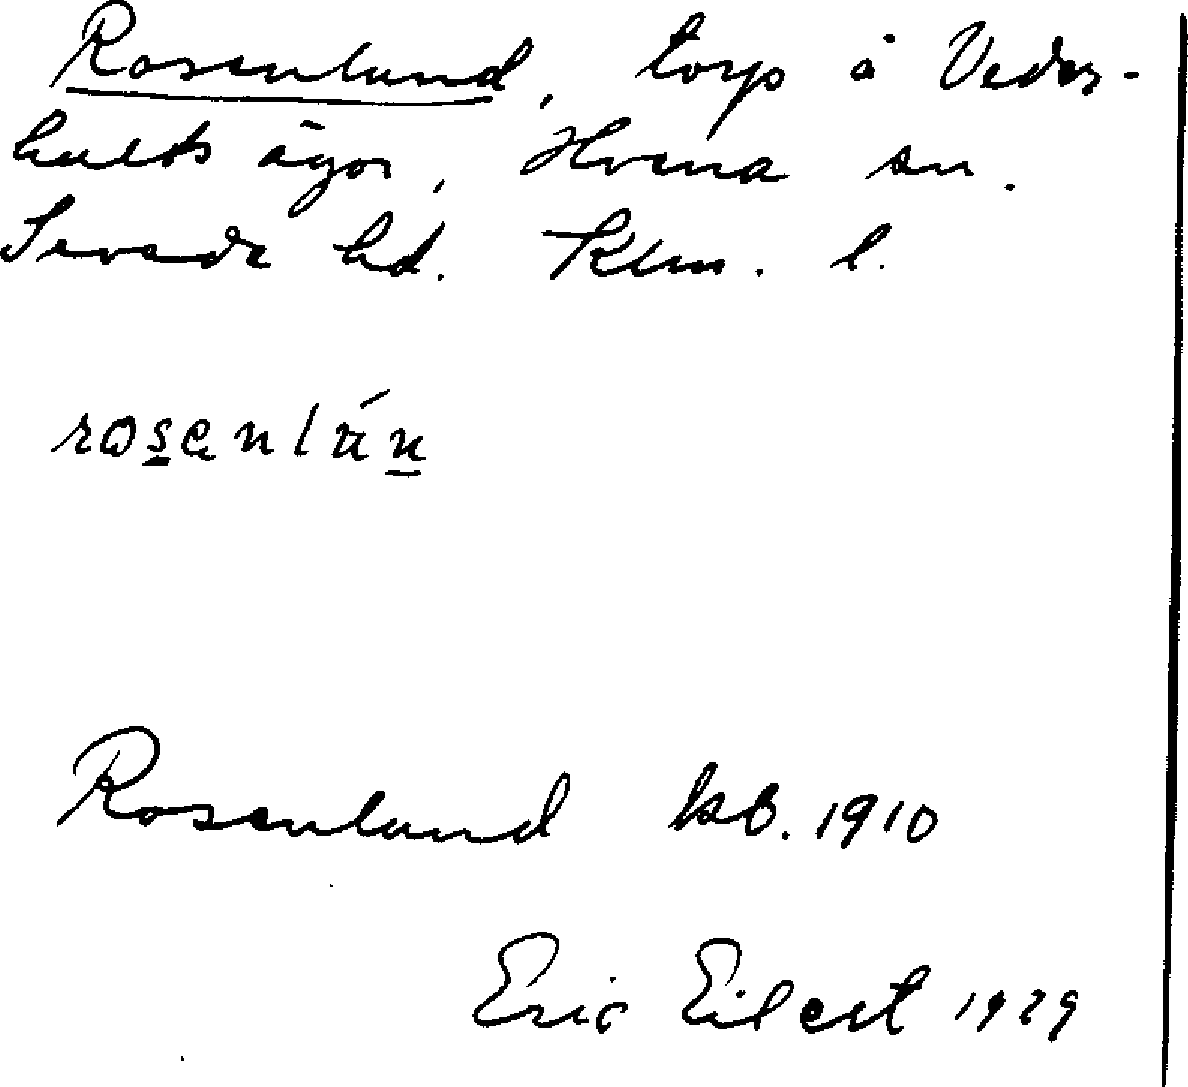 Rosenlund, torp å Veders-
hults ägor, Hvena sn.
Sevede hd. Klm. l.
rosenlún
Rosenlund kb. 1910
Eric Eilert 1929